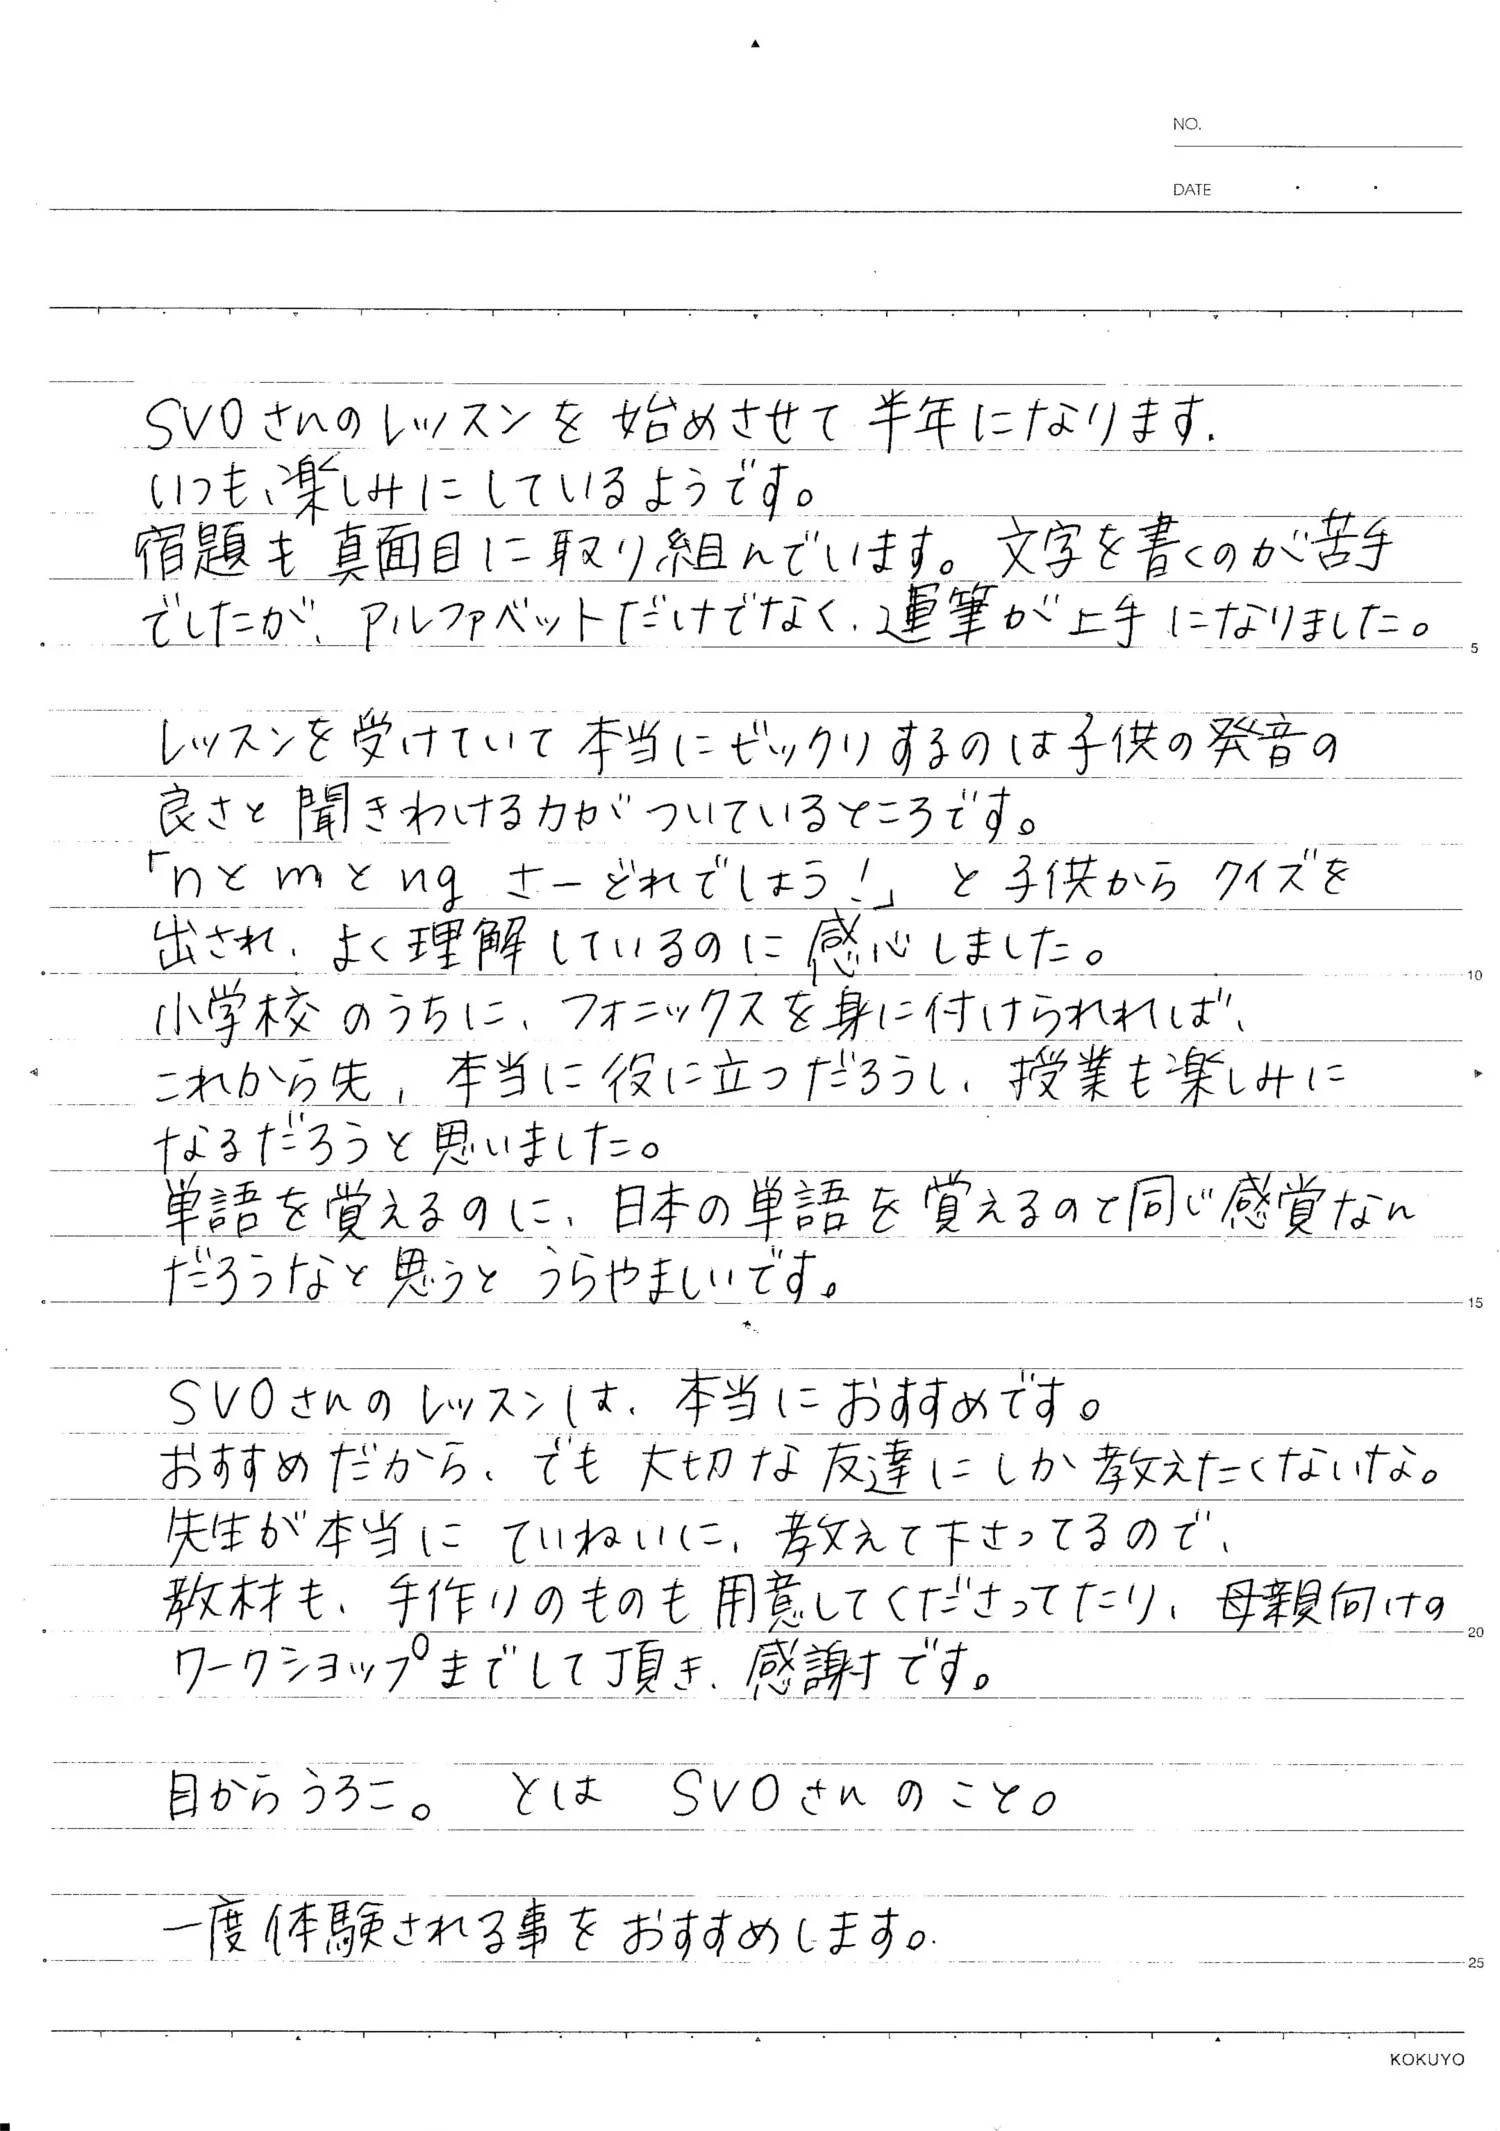 NO.
DATE
SVOさんのレッスンを始めさせて半年になります.
いつも、楽しみにしているようです。
宿題も真面目に取り組んでいます。文字を書くのが苦手
でしたが、アルファベットだけでなく、運筆が上手になりました。
5
レッスンを受けていて本当にビックリするのは子供の発音の
良さと聞きわける力がついているところです。
「nとmとng さーどれでしょう!」と子供からクイズを
出され、よく理解しているのに感心しました。
10
小学校のうちに、フォニックスを身に付けられれば、
これから先、本当に役に立つだろうし、授業も楽しみに
なるだろうと思いました。
単語を覚えるのに、日本の単語を覚えるのと同じ感覚なん
だろうなと思うとうらやましいです。
15
SVOさんのレッスンは、本当におすすめです。
おすすめだから、でも大切な友達にしか教えたくないな。
先生が本当にていねいに、教えて下さってるので、
教材も、手作りのものも用意してくださってたり、母親向けの
20
ワークショップまでして頂き、感謝です。
目からうろこ。 とは SVOさんのこと。
一度体験される事をおすすめします。
25
KOKUYO